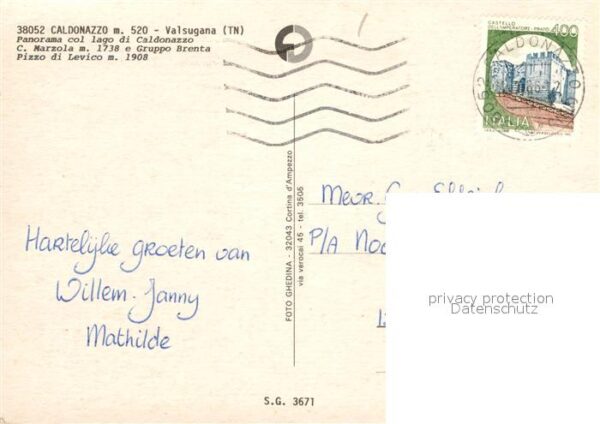 38052 CALDONAZZO m. 520 - Valsugana (TN)
Panorama col lago di Caldonazzo
C. Marzola m. 1738 e Gruppo Brenta
Pizzo di Levico m. 1908
CASTELLO
DELL'IMPERATORE - PRATO
400
ITALIA
CALDONAZZO
FOTO GHEDINA - 32043 Cortina d'Ampezzo
via verocai 45 - tel. 3506
Mevr.
P/A
Hartelijke groeten van
Willem - Janny
Mathilde
privacy protection
Datenschutz
S.G. 3671